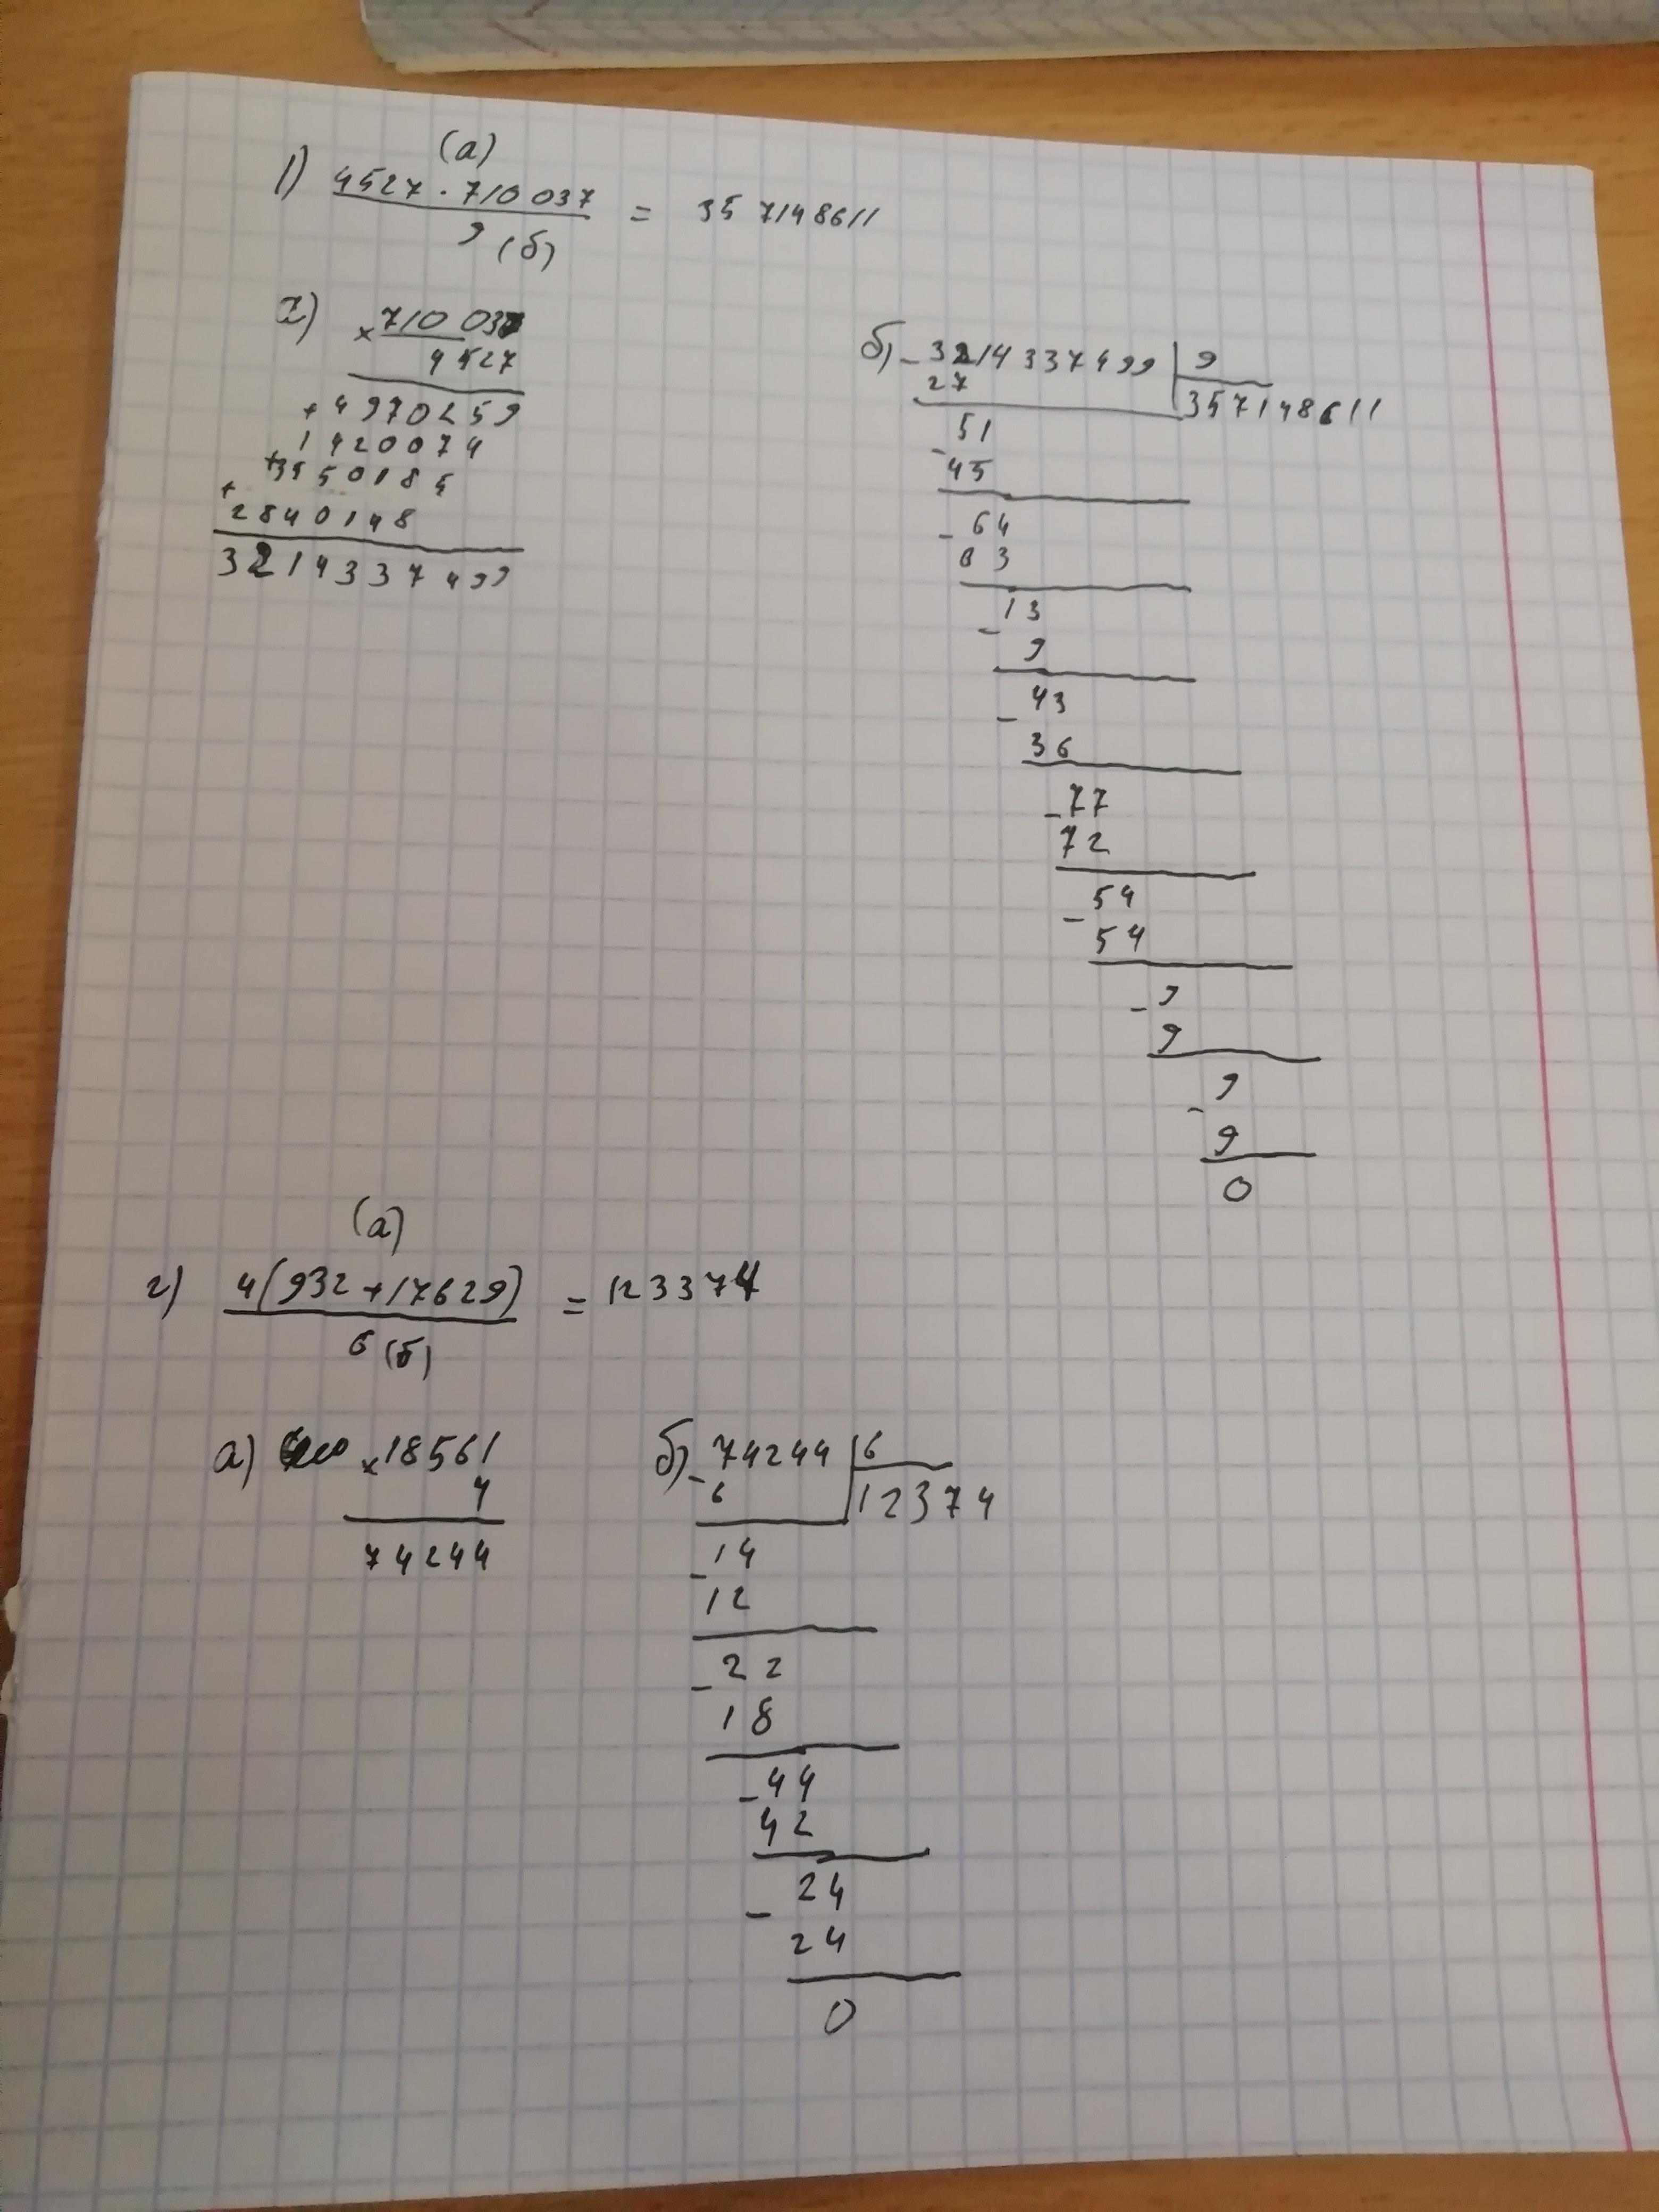 (а)
1) 4527 · 710 037 = 357148611
9 (б)
а) × 710 037
4527
+ 4970259
1420074
+ 3550185
+ 2840148
3214337499
б) - 3214337499 | 9
27 357148611
- 51
45
- 64
63
- 13
9
- 43
36
- 77
72
- 54
54
- 9
9
- 9
9
0
(а)
2) 4(932 + 17629) = 123374
6 (б)
а) × 18561
4
74244
б) - 74244 | 6
6 12374
- 14
12
- 22
18
- 44
42
- 24
24
0